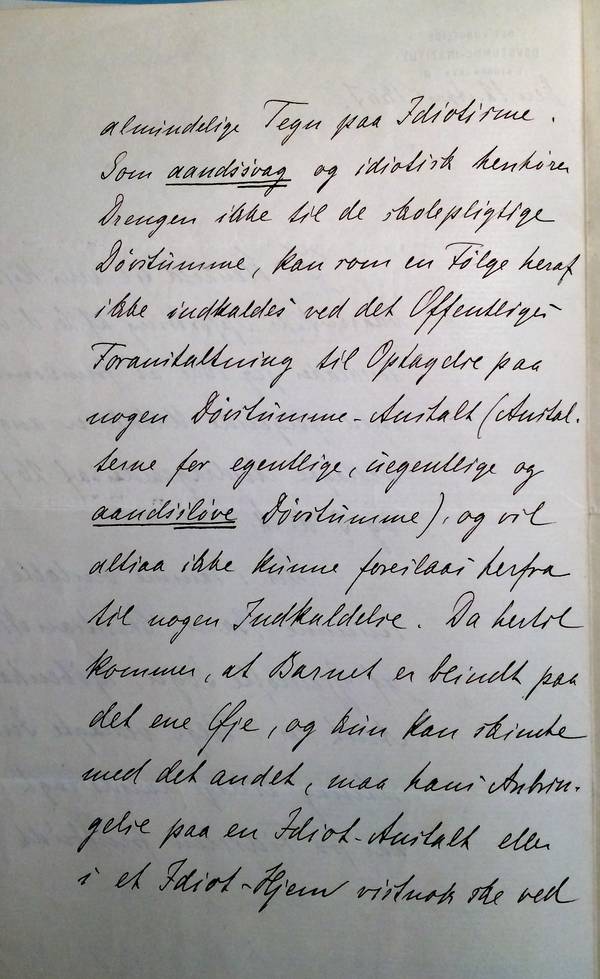 almindelige Tegn paa Idiotisme.
Som aandssvag og idiotisk henhører
Drengen ikke til de skolepligtige
Døvstumme, kan som en Følge heraf
ikke indkaldes ved det Offentliges
Foranstaltning til Optagelse paa
nogen Døvstumme-Anstalt (Anstal-
terne for egentlige, uegentlige og
aandssløve Døvstumme), og vil
altsaa ikke kunne foreslaas herfra
til nogen Indkaldelse. Da hertil
kommer, at Barnet er blindt paa
det ene Øje, og kun kan skimte
med det andet, maa hans Anbrin-
gelse paa en Idiot-Anstalt eller
i et Idiot-Hjem vistnok ske ved